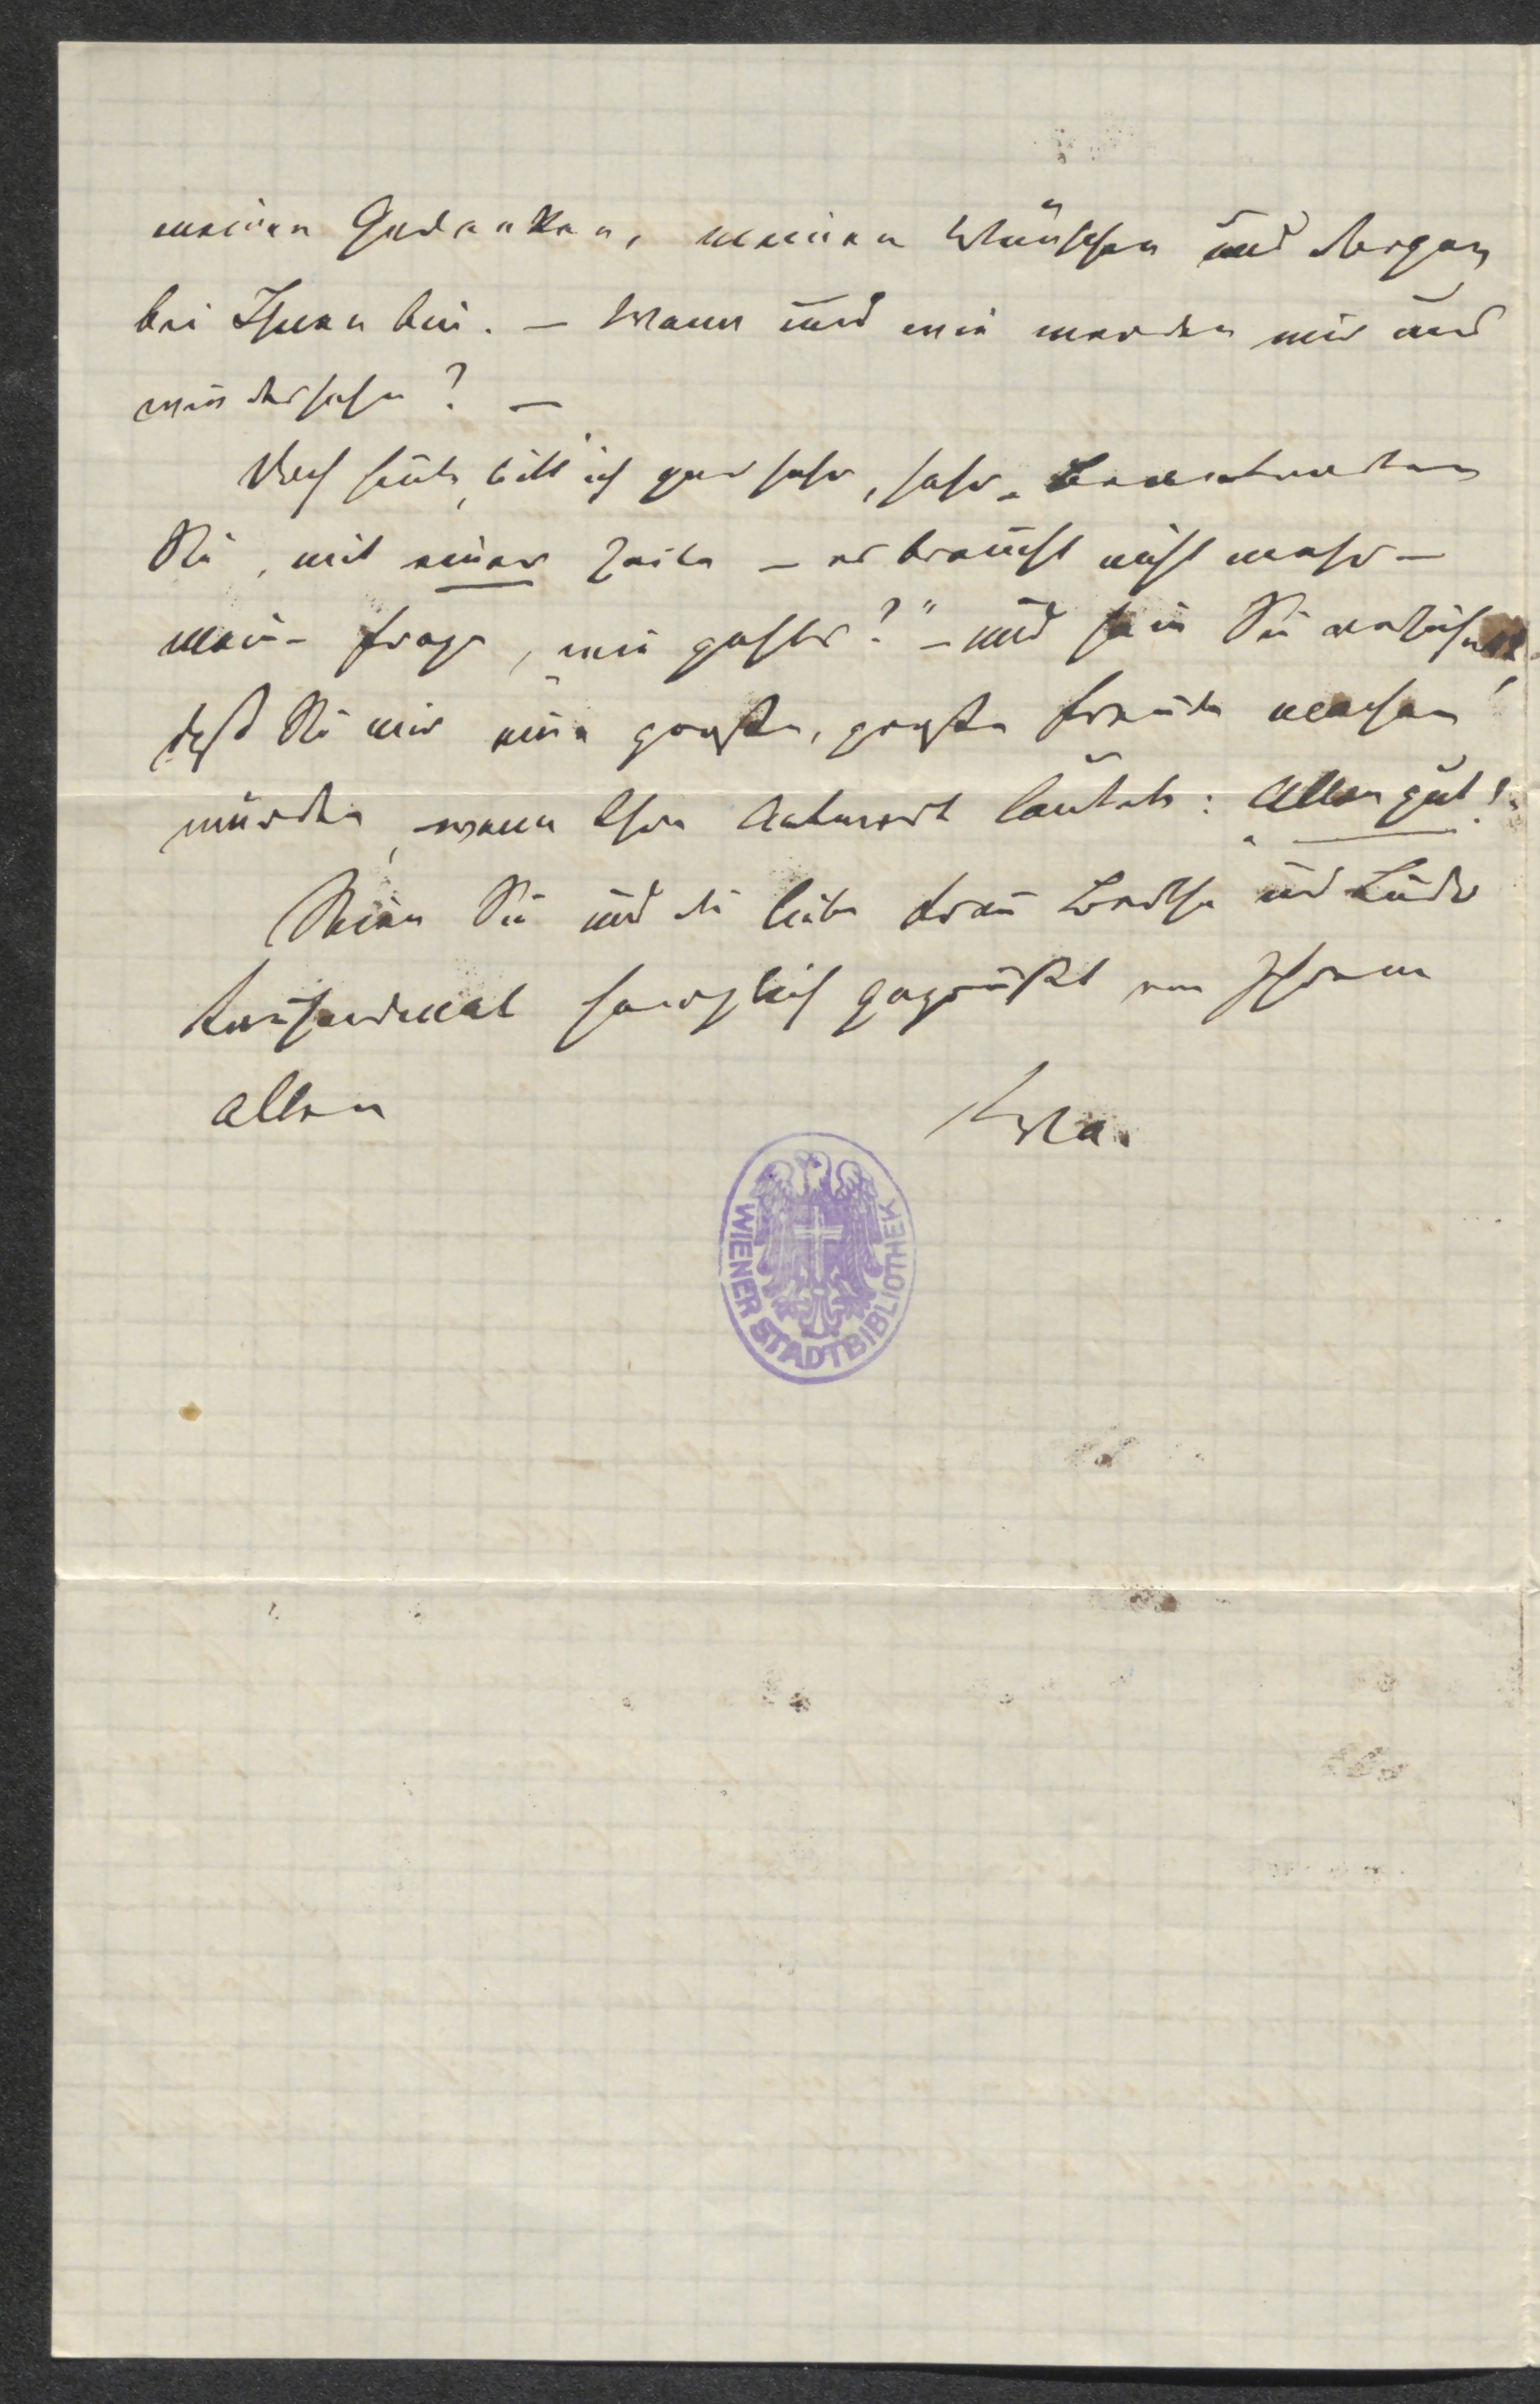 meinen Gedanken, meinen Wünschen und Sorgen
bei Ihnen bin. – Wann und wie werden wir uns
wiedersehen? –
Doch heute, bitt' ich gar sehr, sehr, beantworten
Sie, mit einer Zeile – es braucht nicht mehr –
meine Frage „wie geht's?" – und seien Sie versichert,
daß Sie mir eine große, große Freude machen
würden, wenn Ihre Antwort lautete: Alles gut!
Seien Sie und die liebe Frau und Kinder
tausendmal herzlich gegrüßt von Ihrem
alten
WIENER STADTBIBLIOTHEK